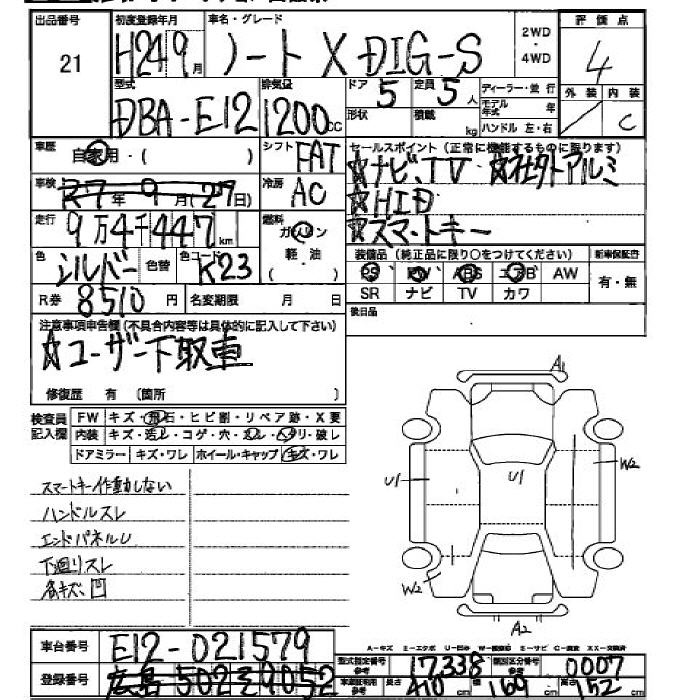 出品番号 初度登録年月 車名・グレード 2WD・4WD 評価点
21 H24 9月 ノート X DIG-S 4
型式 排気量 ドア 5 定員 5人 ディーラー・並行 外装 内装
DBA-E12 1200cc 形状 積載 kg モデル年式 年 / C
ハンドル 左・右
車歴 自家用・( ) シフト FAT セールスポイント(正常に機能するものに限ります)
☆ナビ、TV ☆社外アルミ
車検 27年9月(27日) 冷房 AC ☆HID
走行 9万4千447km 燃料 ガソリン ☆スマートキー
色 シルバー 色替 色コード K23 軽・油 ( )
装備品(純正品に限り○をつけてください) 新車保証書
PS PW ABS エアB AW 有・無
R券 8510円 名変期限 月 日 SR ナビ TV カワ
注意事項申告欄(不具合内容等は具体的に記入して下さい) 後日品
☆ユーザー下取車
修復歴 有 〔箇所 〕
検査員記入欄 FW キズ・飛石・ヒビ割・リペア跡・X要
内装 キズ・汚レ・コゲ・穴・スレ・ヘタリ・破レ
ドアミラー キズ・ワレ ホイール・キャップ キズ・ワレ
A1
U1 U1 W2
W2
A2
スマートキー作動しない
ハンドルスレ
エンドパネルU
下廻リスレ
各キズ、凹
A-キズ E-エクボ U-凹み W-補修波 S-サビ C-腐食 XX-交換済
車台番号 E12-021579
型式指定番号 参考 17338 類別区分番号 参考 0007
登録番号 広島 502 そ 9052
車両証明有り 参考 長さ 410cm 幅 169cm 高さ 152cm